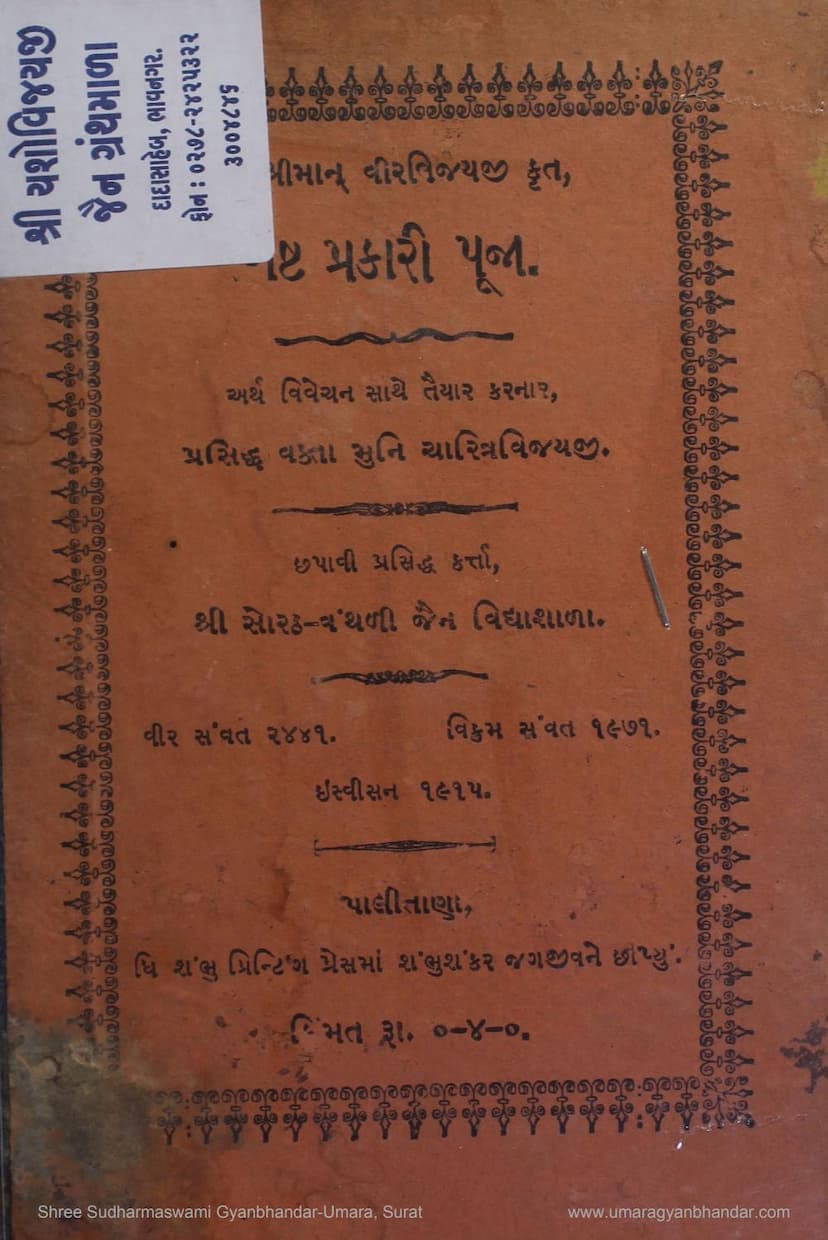 શ્રી યશોવિજયજી
જૈન ગ્રંથમાળા
દાદાસાહેબ, ભાવનગર.
ફોન : ૦૨૭૮-૨૪૨૫૩૨૨
૩૦૦૪૮૪૬
શ્રીમાન્ વીરવિજયજી કૃત,
પ્રકારી પૂજા.
અર્થ વિવેચન સાથે તૈયાર કરનાર,
પ્રસિદ્ધ વક્તા મુનિ ચારિત્રવિજયજી.
છપાવી પ્રસિદ્ધ કર્ત્તા,
શ્રી સોરઠ-વંથળી જૈન વિદ્યાશાળા.
વીર સંવત ૨૪૪૧. વિક્રમ સંવત ૧૯૭૧.
ઇસ્વીસન ૧૯૧૫.
પાલીતાણા,
ધિ શંભુ પ્રિન્ટિંગ પ્રેસમાં શંભુશંકર જગજીવને છાપ્યું.
રૂા. ૦-૪-૦.
Shree Sudharmaswami Gyanbhandar-Umara, Surat www.umaragyanbhandar.com